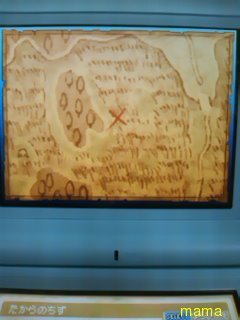 たからのちず
mama